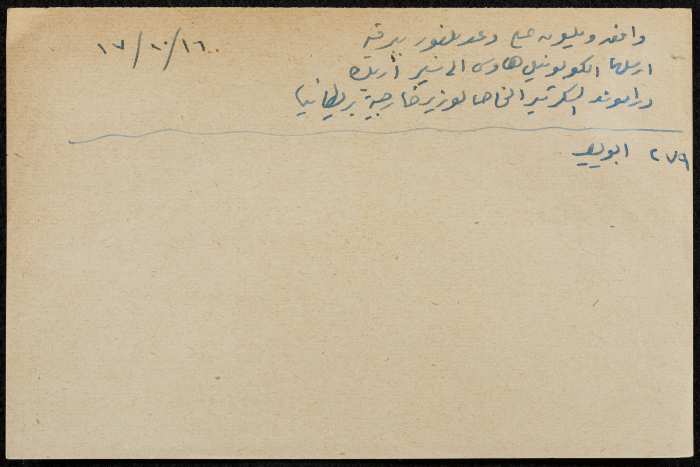 ١٧/١٠/١٦
وافق ويلسون على وعد بلفور ببرقية
ارسلها الكولونيل هاوس الى سير أريك
دراموند السكرتير الخاص لوزير خارجية بريطانيا
٢٧٩ ابو يصير